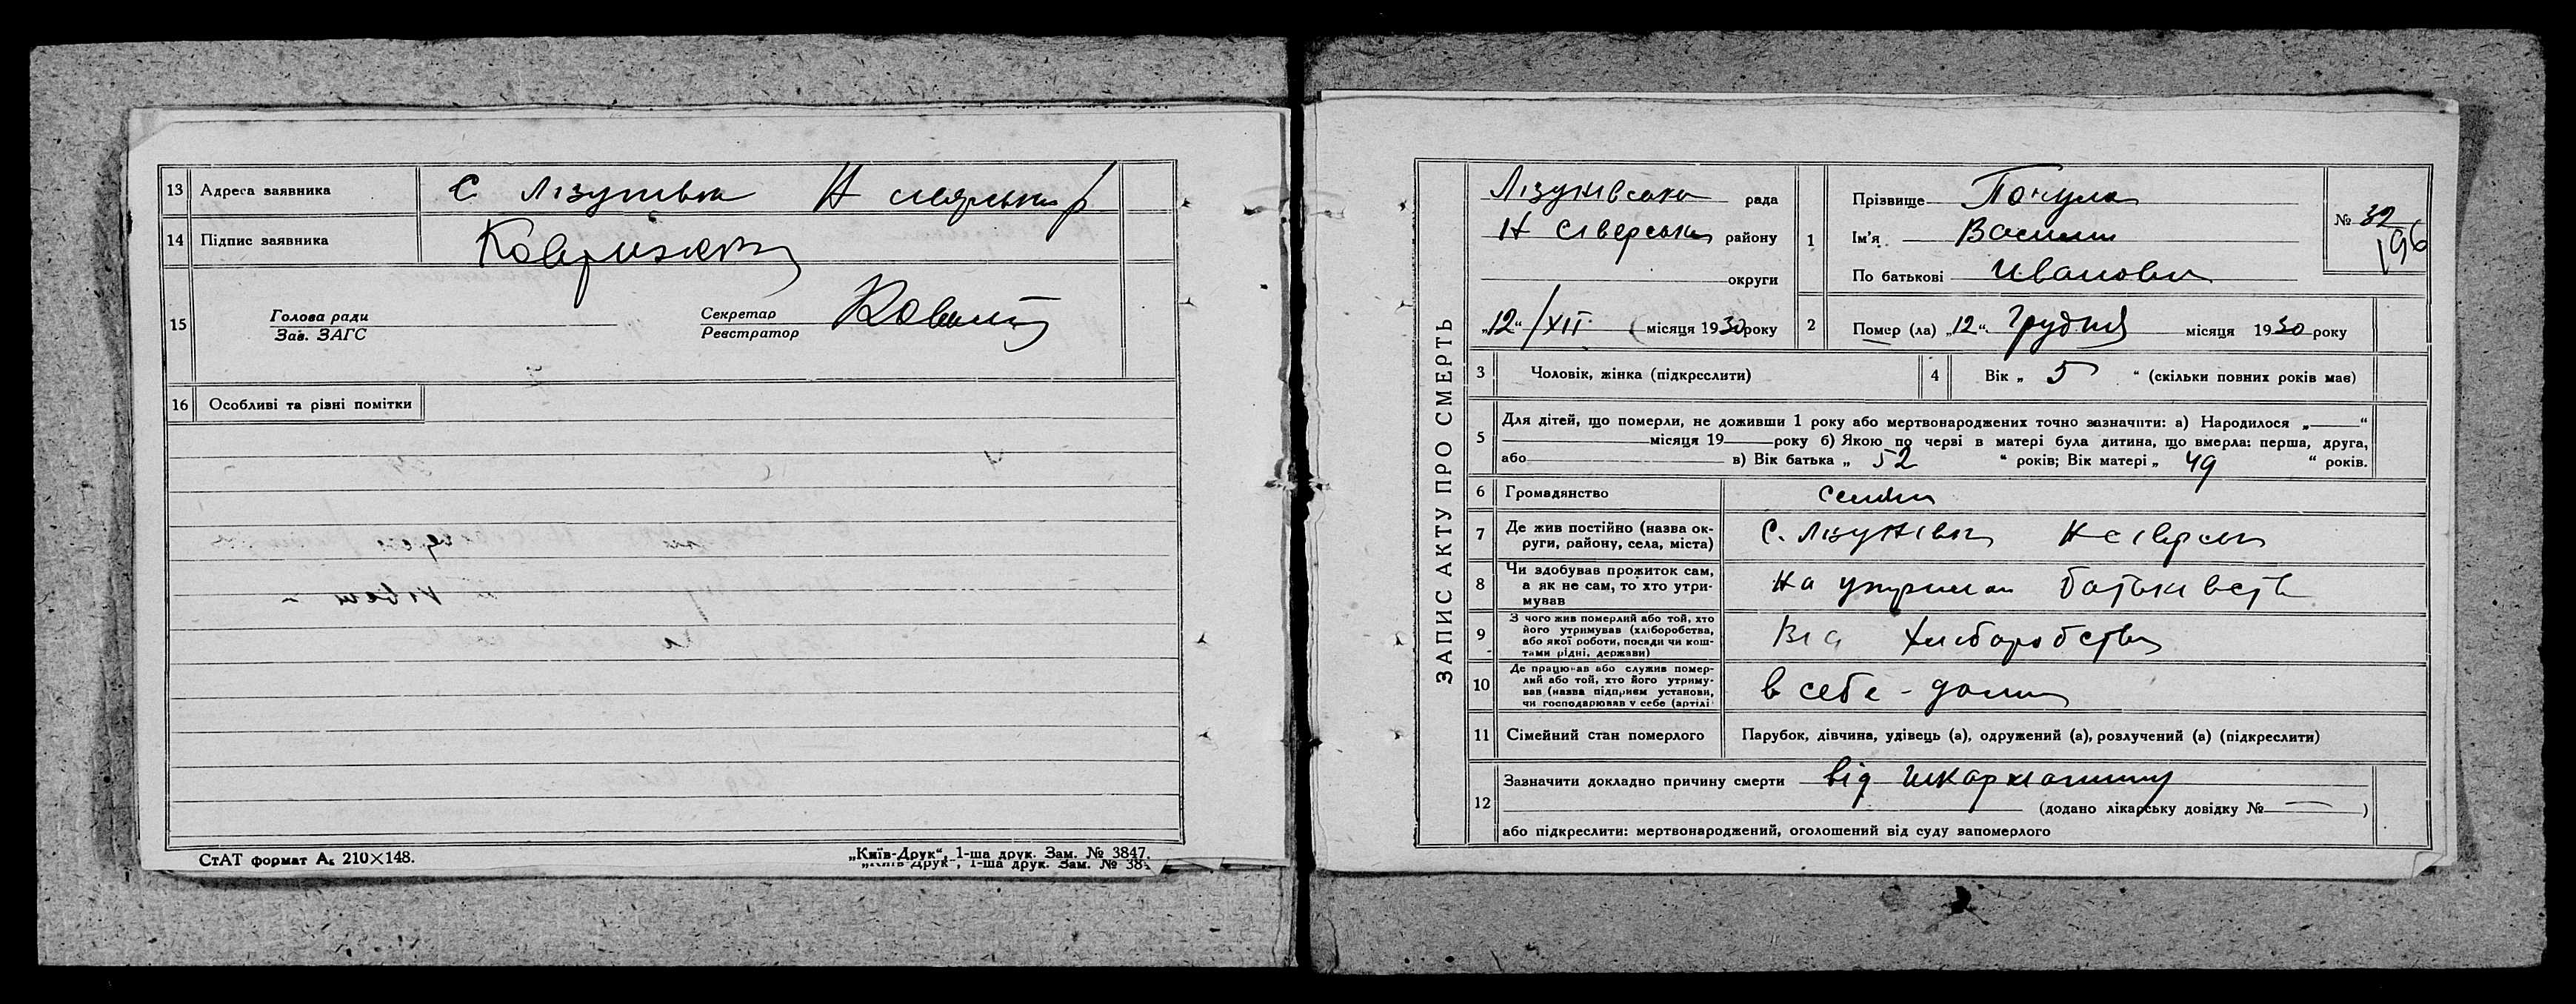 13 Адреса заявника С Лізунівка Н сіверськ р
14 Підпис заявника
15 Голова ради
Зав. ЗАГС
Секретар
Реєстратор
16 Особливі та різні помітки
СтАТ формат А₅ 210×148.
„Київ-Друк“, 1-ша друк. Зам. № 3847.
„Київ-Друк“, 1-ша друк. Зам. № 384
ЗАПИС АКТУ ПРО СМЕРТЬ
Лізунівська рада
Н Сіверськ району
округи
„12“/XII місяця 1930 року
1 Прізвище
Ім'я Василь
По батькові Иванович
№ 32
196
2 Помер (ла) „12“ Грудня місяця 1930 року
3 Чоловік, жінка (підкреслити)
4 Вік „ 5 “ (скільки повних років має)
5 Для дітей, що померли, не доживши 1 року або мертвонароджених точно зазначити: а) Народилося „ “
місяця 19 року б) Якою по черзі в матері була дитина, що вмерла: перша, друга,
або в) Вік батька „ 52 “ років; Вік матері „ 49 “ років.
6 Громадянство
7 Де жив постійно (назва ок-
руги, району, села, міста) С. Лізунівка Н Сіверськ
8 Чи здобував прожиток сам,
а як не сам, то хто утри-
мував На утриман батьківств
9 З чого жив померлий або той, хто
його утримував (хліборобства,
або якої роботи, посади чи кош-
тами рідні, держави) Від хліборобства
10 Де працював або служив помер-
лий або той, хто його утриму-
вав (назва підприєм установи,
чи господарював у себе (артілі в себе - дома
11 Сімейний стан померлого Парубок, дівчина, удівець (а), одружений (а), розлучений (а) (підкреслити)
12 Зазначити докладно причину смерти від шкарлатини
(додано лікарську довідку № — )
або підкреслити: мертвонароджений, оголошений від суду запомерлого